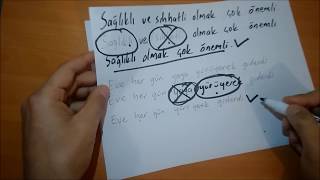 Sağlıklı ve sıhhatli olmak çok önemli
Sağlıklı ve olmak çok önemli
Sağlıklı olmak çok önemli. ✓
Eve her gün yaya yürüyerek giderdi
Eve her gün yaya yürüyerek giderdi
Eve her gün giderdi ✓